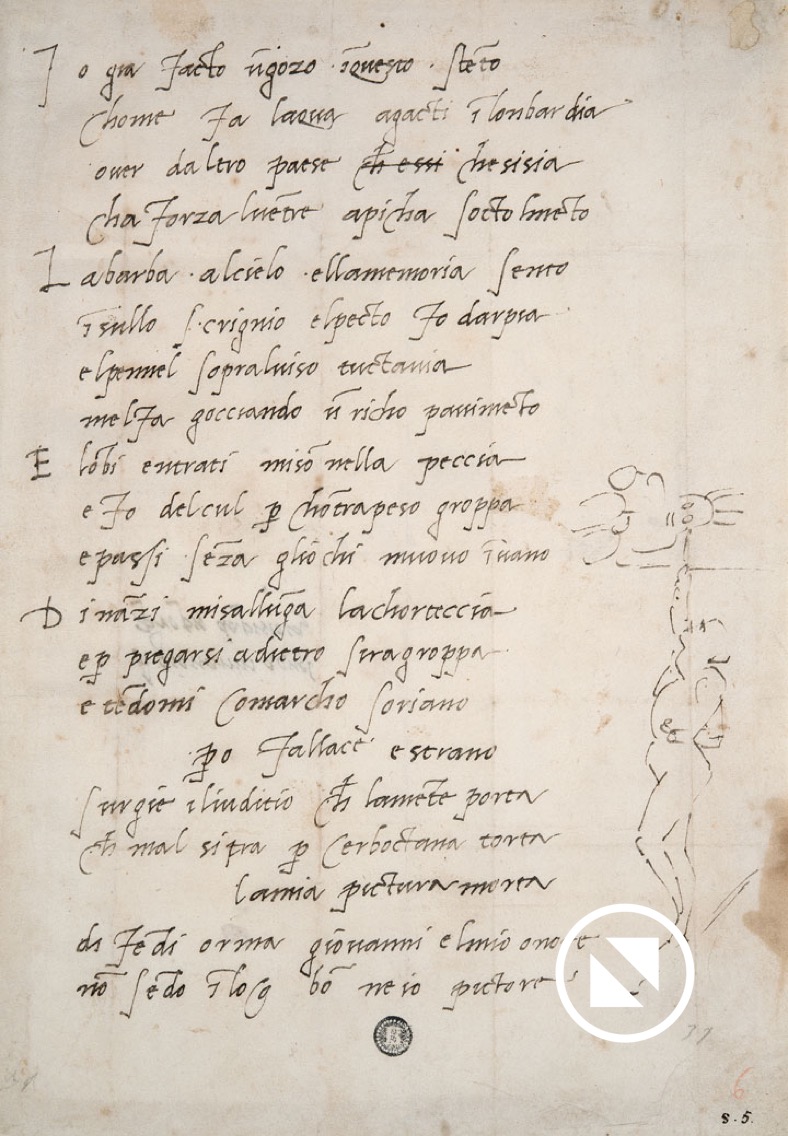 Io gia facto ūgozo īquesto stēto
chome fa laqua agacti īlonbardia
over daltro paese ch essi che sisia
cha forza lvētre apicha socto lmēto
La barba alcielo ellamemoria sento
īsullo scrignio elpecto fo darpia
elpennel sopraluiso tuctavia
melfa gocciando ū richo pavimēto
E lōbi entrati misō nella peccia
e fo delcul p chōtrapeso groppa
e passi sēza gliochi muovo īvano
Dināzi misallūga lachorteccia
e p piegarsi adietro siragroppa
e tēdomi comarcho soriano
po fallace e strano
surgie iliuditio ch lamēte porta
ch mal sitra p cerboctana torta
lamia pictura morta
difēdi orma giovanni elmio onore
nō sēdo īloco bō ne io pictore
37
6
8.5.